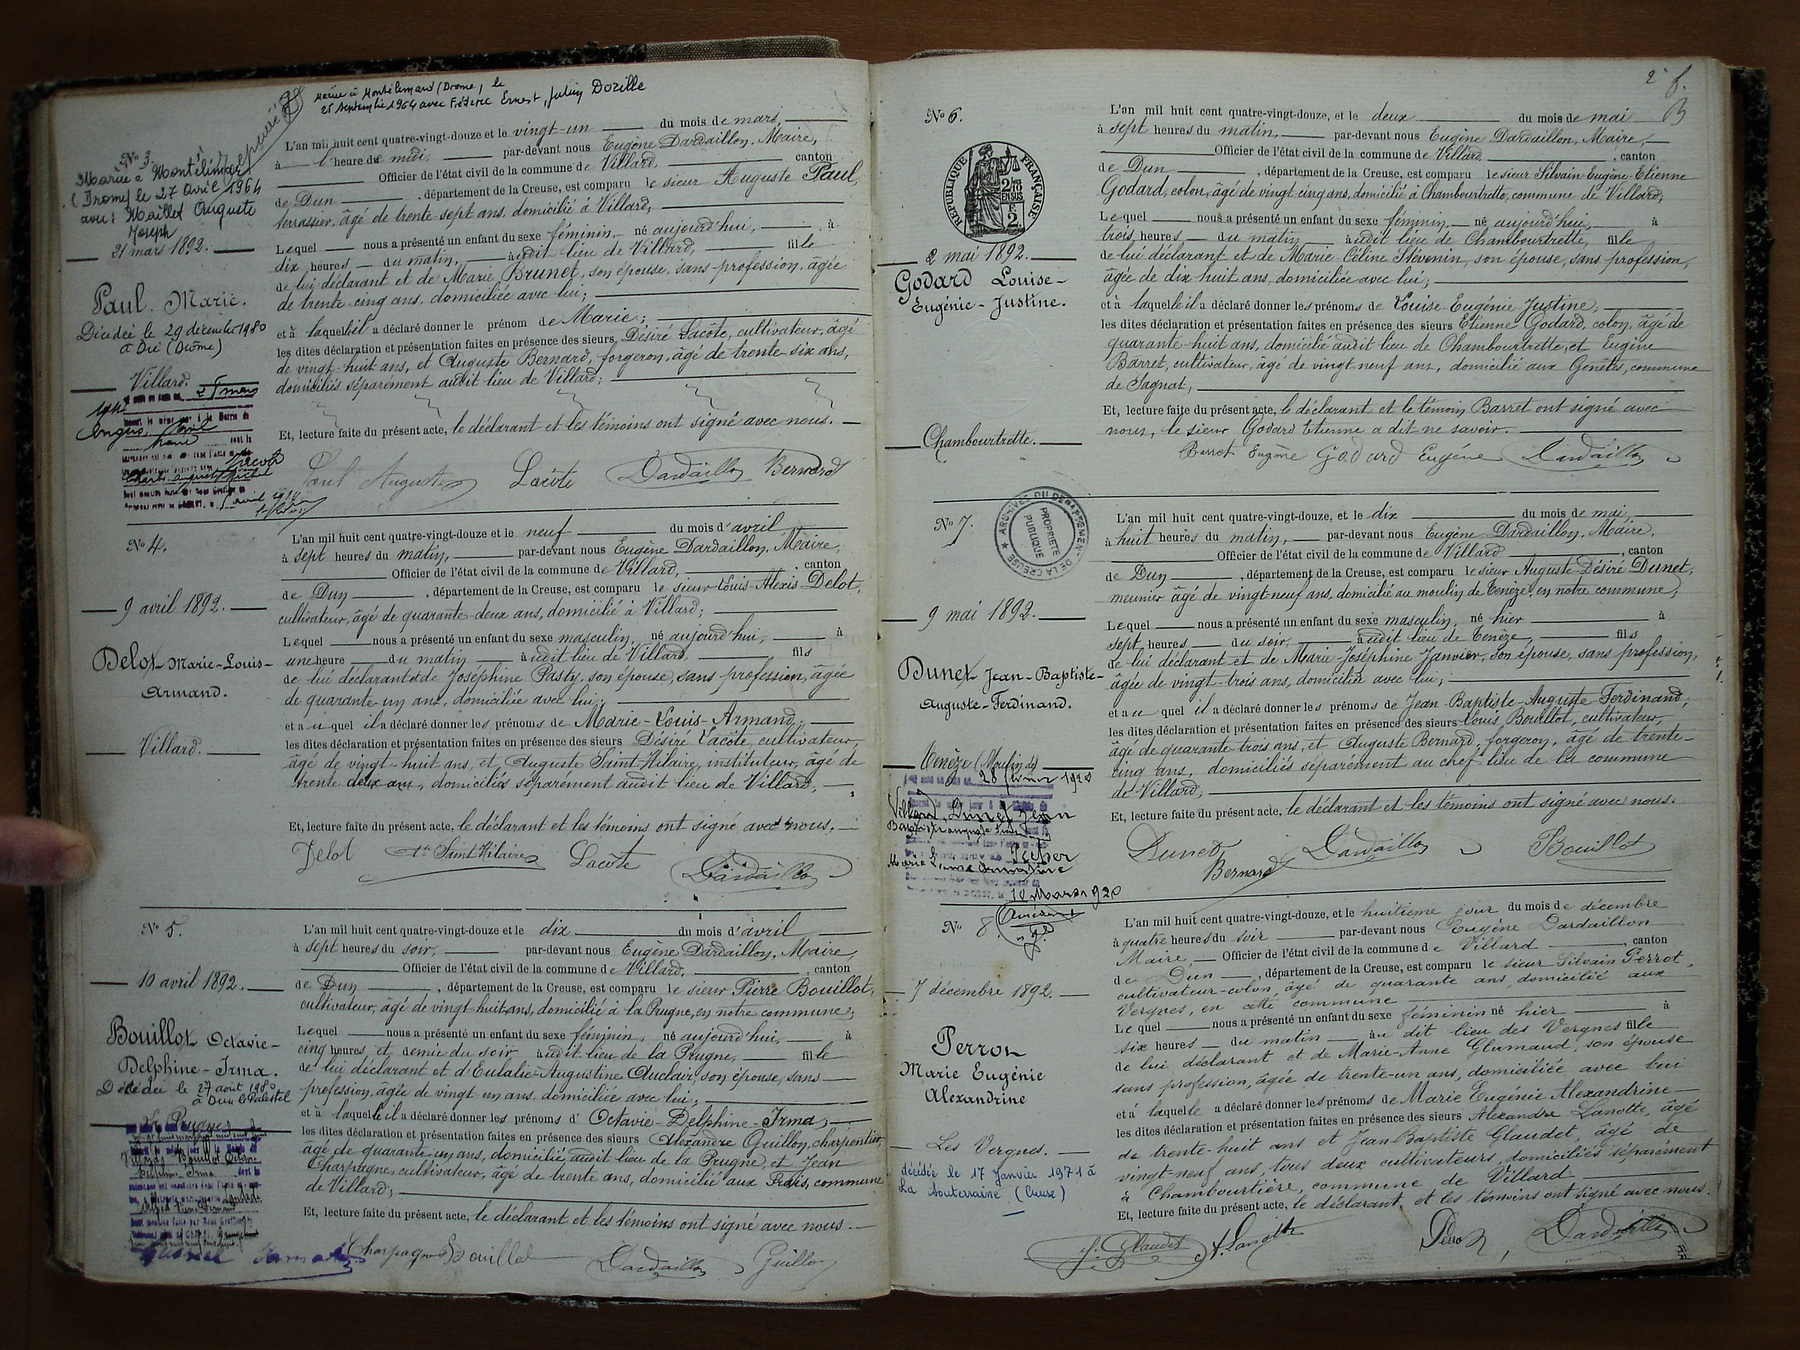 Mariée à Montélimard (Drôme) le
25 Septembre 1964 avec Fédéric Ernest, Julien Dozille
N° 3.
Mariée à Montélimar
(Drôme) le 27 Avril 1964
avec Maillot Auguste
Joseph
21 mars 1892.
Paul Marie.
Décédée le 29 décembre 1980
à Die (Drôme)
Villard.
L'an mil huit cent quatre-vingt-douze et le vingt-un du mois de mars,
à l'heure de midi par-devant nous Eugène Dardaillon, Maire,
Officier de l'état civil de la commune de Villard canton
de Dun, département de la Creuse, est comparu le sieur Auguste Paul,
terrassier, âgé de trente sept ans, domicilié à Villard,
Lequel nous a présenté un enfant du sexe féminin, né aujourd'hui, à
dix heures du matin, audit lieu de Villard, fille
de lui déclarant et de Marie Brunet, son épouse, sans profession, âgée
de trente cinq ans, domiciliée avec lui;
et à laquelle il a déclaré donner le prénom de Marie;
les dites déclaration et présentation faites en présence des sieurs Désiré Lacôte, cultivateur, âgé
de vingt-huit ans, et Auguste Bernard, forgeron, âgé de trente six ans,
domiciliés séparément audit lieu de Villard;
Et, lecture faite du présent acte, le déclarant et les témoins ont signé avec nous.
Paul Auguste Lacôte Dardaillon Bernard
N° 4.
9 avril 1892.
Delot Marie-Louis-
Armand.
Villard.
L'an mil huit cent quatre-vingt-douze et le neuf du mois d'avril
à sept heures du matin, par-devant nous Eugène Dardaillon, Maire,
Officier de l'état civil de la commune de Villard, canton
de Dun, département de la Creuse, est comparu le sieur Louis-Alexis Delot,
cultivateur, âgé de quarante-deux ans, domicilié à Villard;
Lequel nous a présenté un enfant du sexe masculin, né aujourd'hui, à
une heure du matin audit lieu de Villard, fils
de lui déclarant et de Joséphine Pasty, son épouse, sans profession, âgée
de quarante-un ans, domiciliée avec lui;
et au quel il a déclaré donner les prénoms de Marie-Louis-Armand;
les dites déclaration et présentation faites en présence des sieurs Désiré Lacôte, cultivateur,
âgé de vingt-huit ans, et Auguste Saint-Hilaire, instituteur, âgé de
trente deux ans, domiciliés séparément audit lieu de Villard,
Et, lecture faite du présent acte, le déclarant et les témoins ont signé avec nous.
Delot Saint Hilaire Lacote Dardaillon
N° 5.
10 avril 1892.
Bouillot Octavie-
Delphine-Irma.
Décédée le 27 août 1980
à Dun le Palestel
La Prugne
L'an mil huit cent quatre-vingt-douze et le dix du mois d'avril
à sept heures du soir, par-devant nous Eugène Dardaillon, Maire,
Officier de l'état civil de la commune de Villard, canton
de Dun, département de la Creuse, est comparu le sieur Pierre Bouillot,
cultivateur, âgé de vingt huit ans, domicilié à la Prugne, en notre commune;
Lequel nous a présenté un enfant du sexe féminin, né aujourd'hui, à
cinq heures et demie du soir audit lieu de la Prugne, fille
de lui déclarant et d'Eulalie-Augustine Auclair, son épouse, sans
profession, âgée de vingt-un ans, domiciliée avec lui;
et à laquelle il a déclaré donner les prénoms d'Octavie-Delphine-Irma;
les dites déclaration et présentation faites en présence des sieurs Alexandre Guillon, charpentier
âgé de quarante un ans, domicilié audit lieu de la Prugne, et Jean
Charpagne, cultivateur, âgé de trente ans, domicilié aux commune
de Villard;
Et, lecture faite du présent acte, le déclarant et les témoins ont signé avec nous.
Charpagne Bouillot Dardaillon Guillon
2e f.
N° 6.
RÉPUBLIQUE FRANÇAISE
2 mai 1892.
Godard Louise-
Eugénie-Justine.
Chambourtrette.
L'an mil huit cent quatre-vingt-douze, et le deux du mois de mai
à sept heures du matin, par-devant nous Eugène Dardaillon, Maire,
Officier de l'état civil de la commune de Villard, canton
de Dun, département de la Creuse, est comparu le sieur Silvain-Eugène-Etienne
Godard, colon, âgé de vingt cinq ans, domicilié à Chambourtrette, commune de Villard,
Lequel nous a présenté un enfant du sexe féminin, né aujourd'hui, à
trois heures du matin audit lieu de Chambourtrette, fille
de lui déclarant et de Marie-Céline Thévenin, son épouse, sans profession,
âgée de dix huit ans, domiciliée avec lui;
et à laquelle il a déclaré donner les prénoms de Louise Eugénie Justine;
les dites déclaration et présentation faites en présence des sieurs Etienne Godard, colon, âgé de
quarante-huit ans, domicilié audit lieu de Chambourtrette, et Eugène
Barret, cultivateur, âgé de vingt neuf ans, domicilié aux Genêtes, commune
de Sagnat,
Et, lecture faite du présent acte, le déclarant et le témoin Barret ont signé avec
nous, le sieur Godard Etienne a dit ne savoir.
Barret Eugène Godard Eugène Dardaillon
N° 7.
ARCHIVES DU DEPARTEMENT DE LA CREUSE
PROPRIETE
PUBLIQUE
9 mai 1892.
Dunet Jean-Baptiste-
Auguste-Ferdinand.
Tenèze (Moulin de)
28 février 1920
Villard, Dunet Jean
10 Mars 1920
L'an mil huit cent quatre-vingt-douze, et le dix du mois de mai,
à huit heures du matin, par-devant nous Eugène Dardaillon, Maire,
Officier de l'état civil de la commune de Villard, canton
de Dun, département de la Creuse, est comparu le sieur Auguste-Désiré Dunet,
meunier âgé de vingt-neuf ans, domicilié au moulin de Tenèze, en notre commune;
Lequel nous a présenté un enfant du sexe masculin, né hier à
sept heures du soir, audit lieu de Tenèze, fils
de lui déclarant et de Marie-Joséphine Janvier, son épouse, sans profession,
âgée de vingt-trois ans, domiciliée avec lui;
et au quel il a déclaré donner les prénoms de Jean Baptiste-Auguste Ferdinand;
les dites déclaration et présentation faites en présence des sieurs Louis Bouillot, cultivateur,
âgé de quarante trois ans, et Auguste Bernard, forgeron, âgé de trente-
cinq ans, domiciliés séparément au chef lieu de la commune
de Villard,
Et, lecture faite du présent acte, le déclarant et les témoins ont signé avec nous.
Dunet Dardaillon Bouillot
Bernard
N° 8.
7 décembre 1892.
Perrot
Marie Eugénie
Alexandrine
Les Vergnes.
décédée le 17 Janvier 1971 à
La Souterraine (Creuse)
L'an mil huit cent quatre-vingt-douze, et le huitième jour du mois de décembre
à quatre heures du soir par-devant nous Eugène Dardaillon
Maire, Officier de l'état civil de la commune de Villard, canton
de Dun, département de la Creuse, est comparu le sieur Silvain Perrot,
cultivateur-colon, âgé de quarante ans, domicilié aux
Vergnes, en cette commune
Le quel nous a présenté un enfant du sexe féminin né hier à
six heures du matin au dit lieu des Vergnes fille
de lui déclarant et de Marie-Anne Glumaud, son épouse
sans profession, âgée de trente-un ans, domiciliée avec lui
et à laquelle a déclaré donner les prénoms de Marie Eugénie Alexandrine
les dites déclaration et présentation faites en présence des sieurs Alexandre Lanotte, âgé
de trente-huit ans et Jean Baptiste Glaudet, âgé de
vingt-neuf ans, tous deux cultivateurs, domiciliés séparément
à Chambourtière, commune de Villard
Et, lecture faite du présent acte, le déclarant et les témoins ont signé avec nous.
J. Glaudet A. Lanotte Perrot, Dardaillon